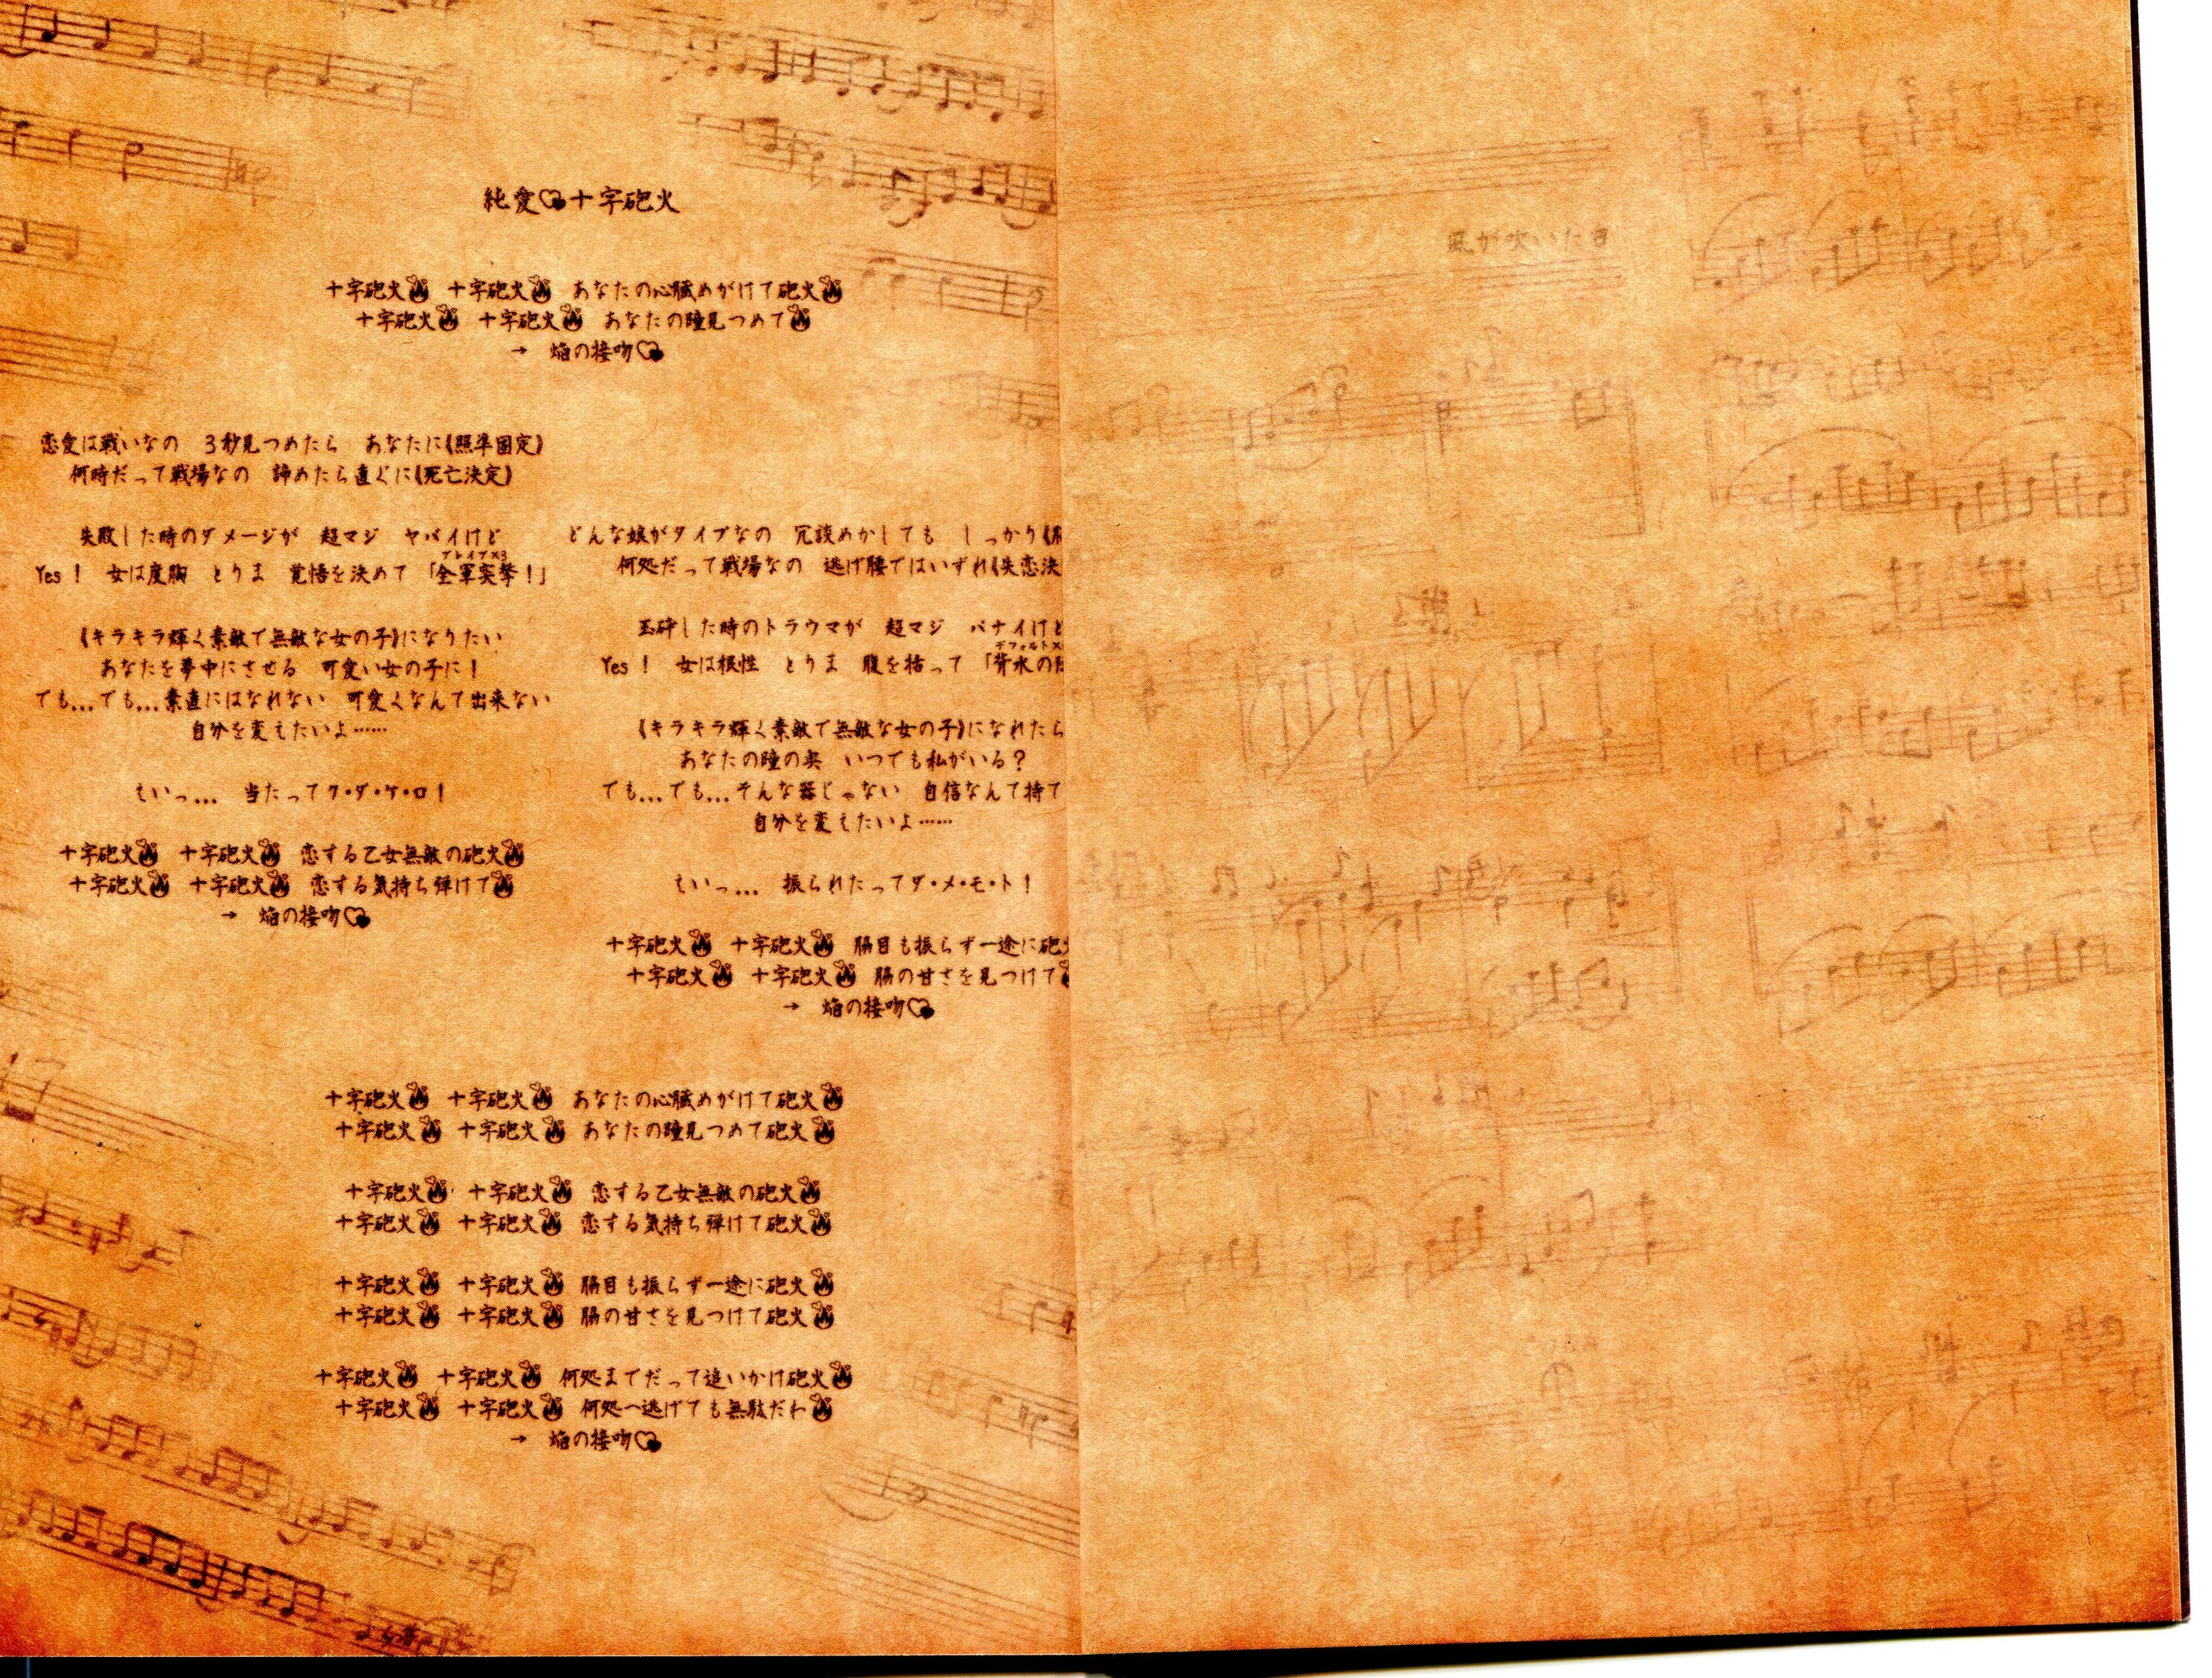 純愛♡十字砲火
十字砲火 十字砲火 あなたの心臓めがけて砲火
十字砲火 十字砲火 あなたの瞳見つめて
→ 焔の接吻♡
恋愛は戦いなの 3秒見つめたら あなたに《照準固定》
何時だって戦場なの 諦めたら直ぐに《死亡決定》
失敗した時のダメージが 超マジ ヤバイけど
ブレイブ×3
Yes! 女は度胸 とりま 覚悟を決めて 「全軍突撃!」
《キラキラ輝く素敵で無敵な女の子》になりたい
あなたを夢中にさせる 可愛い女の子に!
でも…でも…素直にはなれない 可愛くなんて出来ない
自分を変えたいよ……
もいっ… 当たってク・ダ・ケ・ロ!
十字砲火 十字砲火 恋する乙女無敵の砲火
十字砲火 十字砲火 恋する気持ち弾けて
→ 焔の接吻♡
どんな娘がタイプなの 冗談めかしても しっかり《
何処だって戦場なの 逃げ腰ではいずれ《失恋決
玉砕した時のトラウマが 超マジ パナイけど
デフォルト×
Yes! 女は根性 とりま 腹を括って 「背水の
《キラキラ輝く素敵で無敵な女の子》になれたら
あなたの瞳の奥 いつでも私がいる?
でも…でも…そんな器じゃない 自信なんて持て
自分を変えたいよ……
もいっ… 振られたってダ・メ・モ・ト!
十字砲火 十字砲火 脇目も振らず一途に砲火
十字砲火 十字砲火 脇の甘さを見つけて
→ 焔の接吻♡
十字砲火 十字砲火 あなたの心臓めがけて砲火
十字砲火 十字砲火 あなたの瞳見つめて砲火
十字砲火 十字砲火 恋する乙女無敵の砲火
十字砲火 十字砲火 恋する気持ち弾けて砲火
十字砲火 十字砲火 脇目も振らず一途に砲火
十字砲火 十字砲火 脇の甘さを見つけて砲火
十字砲火 十字砲火 何処までだって追いかけ砲火
十字砲火 十字砲火 何処へ逃げても無駄だわ
→ 焔の接吻♡
風が吹いた日